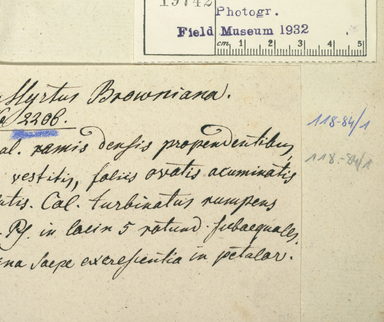 19742
Photogr.
Field Museum 1932
cm. 1 2 3 4 5
Myrtus Browniana.
2206.
118-84/1
al. ramis densis propendentibus,
118-84/1
vestitis, foliis ovatis acuminatis
Cal. turbinatus rumpens
in lacin 5 rotund. subaequales,
saepe excrescentia in petalor.